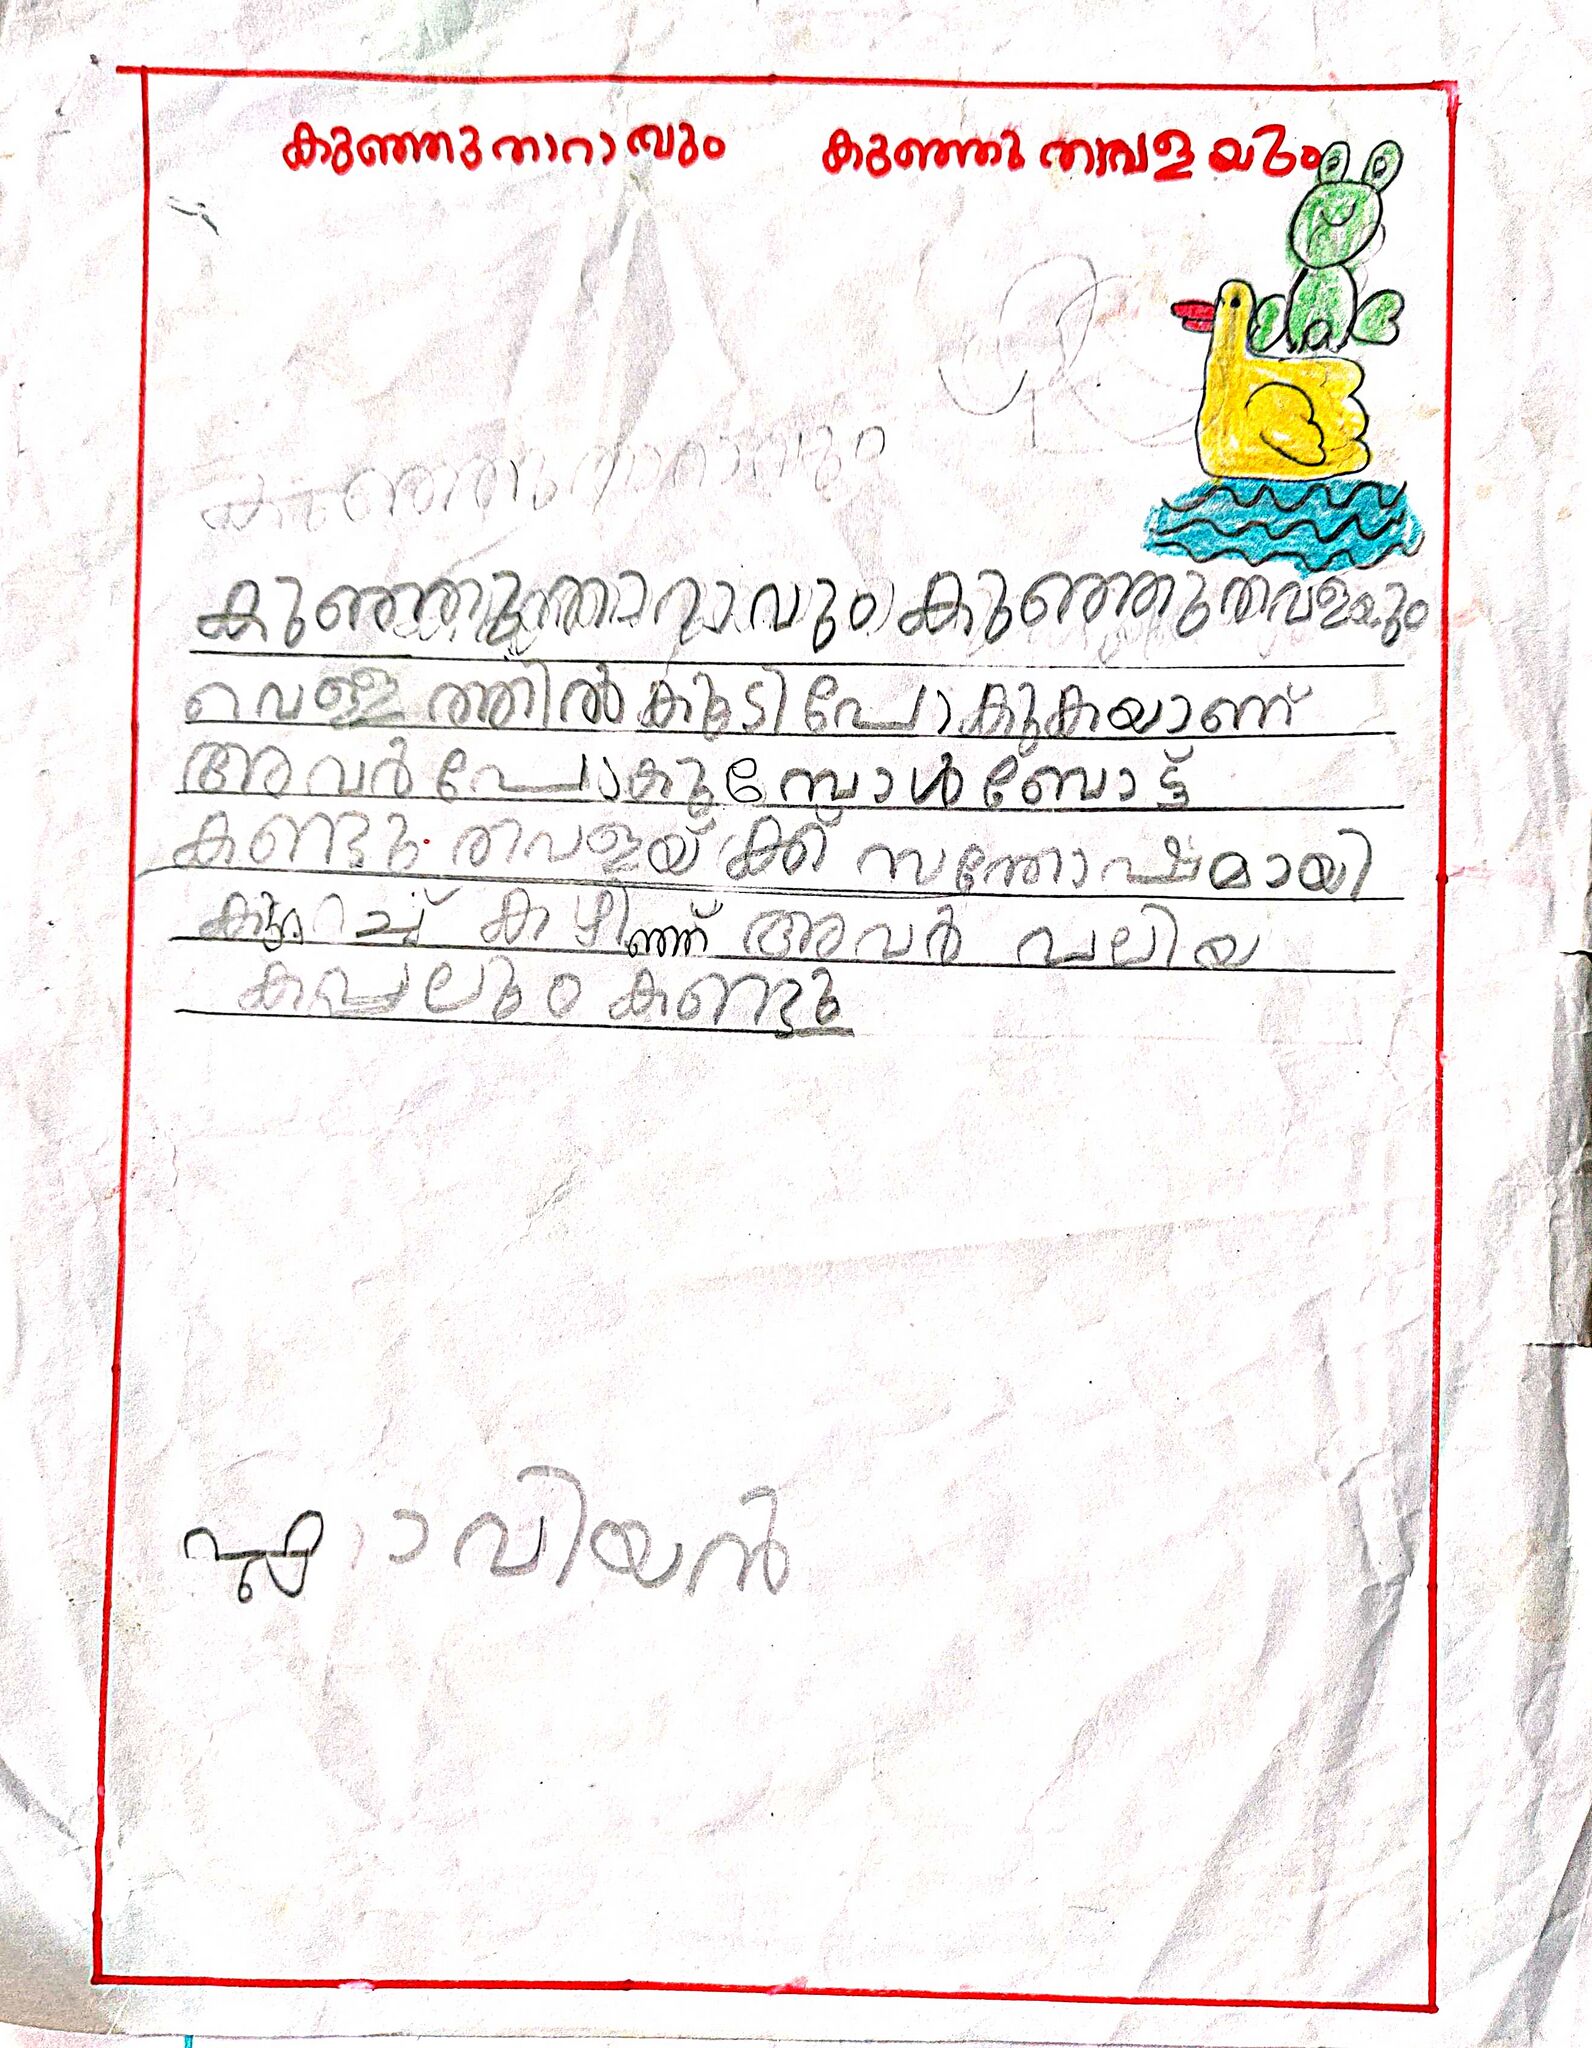 കുഞ്ഞു താറാവും കുഞ്ഞു തവളയും
കുഞ്ഞുതാറാവും
കുഞ്ഞുതാറാവും കുഞ്ഞുതവളയും
വെള്ളത്തിൽകൂടി പോകുകയാണ്
അവർ പോകുമ്പോൾ ബോട്ട്
കണ്ടു. തവളയ്ക്ക് സന്തോഷമായി
കുറച്ച് കഴിഞ്ഞ് അവർ വലിയ
കപ്പലും കണ്ടു
ഫ്ലാവിയൻ